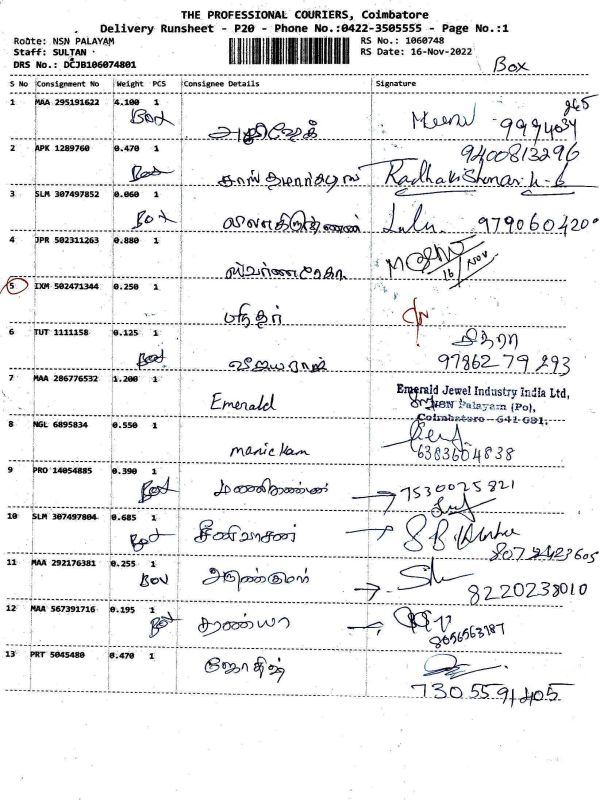 THE PROFESSIONAL COURIERS, Coimbatore
Delivery Runsheet - P20 - Phone No.:0422-3505555 - Page No.:1
Route: NSN PALAYAM
Staff: SULTAN
DRS No.: DCJB106074801
RS No.: 1060748
RS Date: 16-Nov-2022
Box
S No Consignment No Weight PCS Consignee Details Signature
1 MAA 295191622 4.100 1
Box
2 APK 1289760 0.470 1
Box 9400813296
Radhakrishnan
3 SLM 307497852 0.060 1
Box Lulu
4 JPR 502311263 0.880 1
ஸ்வர்ணரேகா 16/Nov
5 IXM 502471344 0.250 1
6 TUT 1111158 0.125 1
Box விஜயராஜ் சித்ரா
97862 79 293
7 MAA 286776532 1.200 1
Emerald
Emerald Jewel Industry India Ltd,
NSN Palayam (Po),
Coimbatore - 641 031.
8 NGL 6895834 0.550 1
manickam 6383604838
9 PRO 14054885 0.390 1
Box மணிகண்டன் 7530025821
10 SLM 307497804 0.685 1
Box சீனிவாசன்
8072423605
11 MAA 292176381 0.255 1
Box அருண்குமார்
8220238010
12 MAA 567391716 0.195 1
Box சரண்யா
8056563787
13 PRT 5045480 0.470 1
ஜோதிஷ்
7305591405